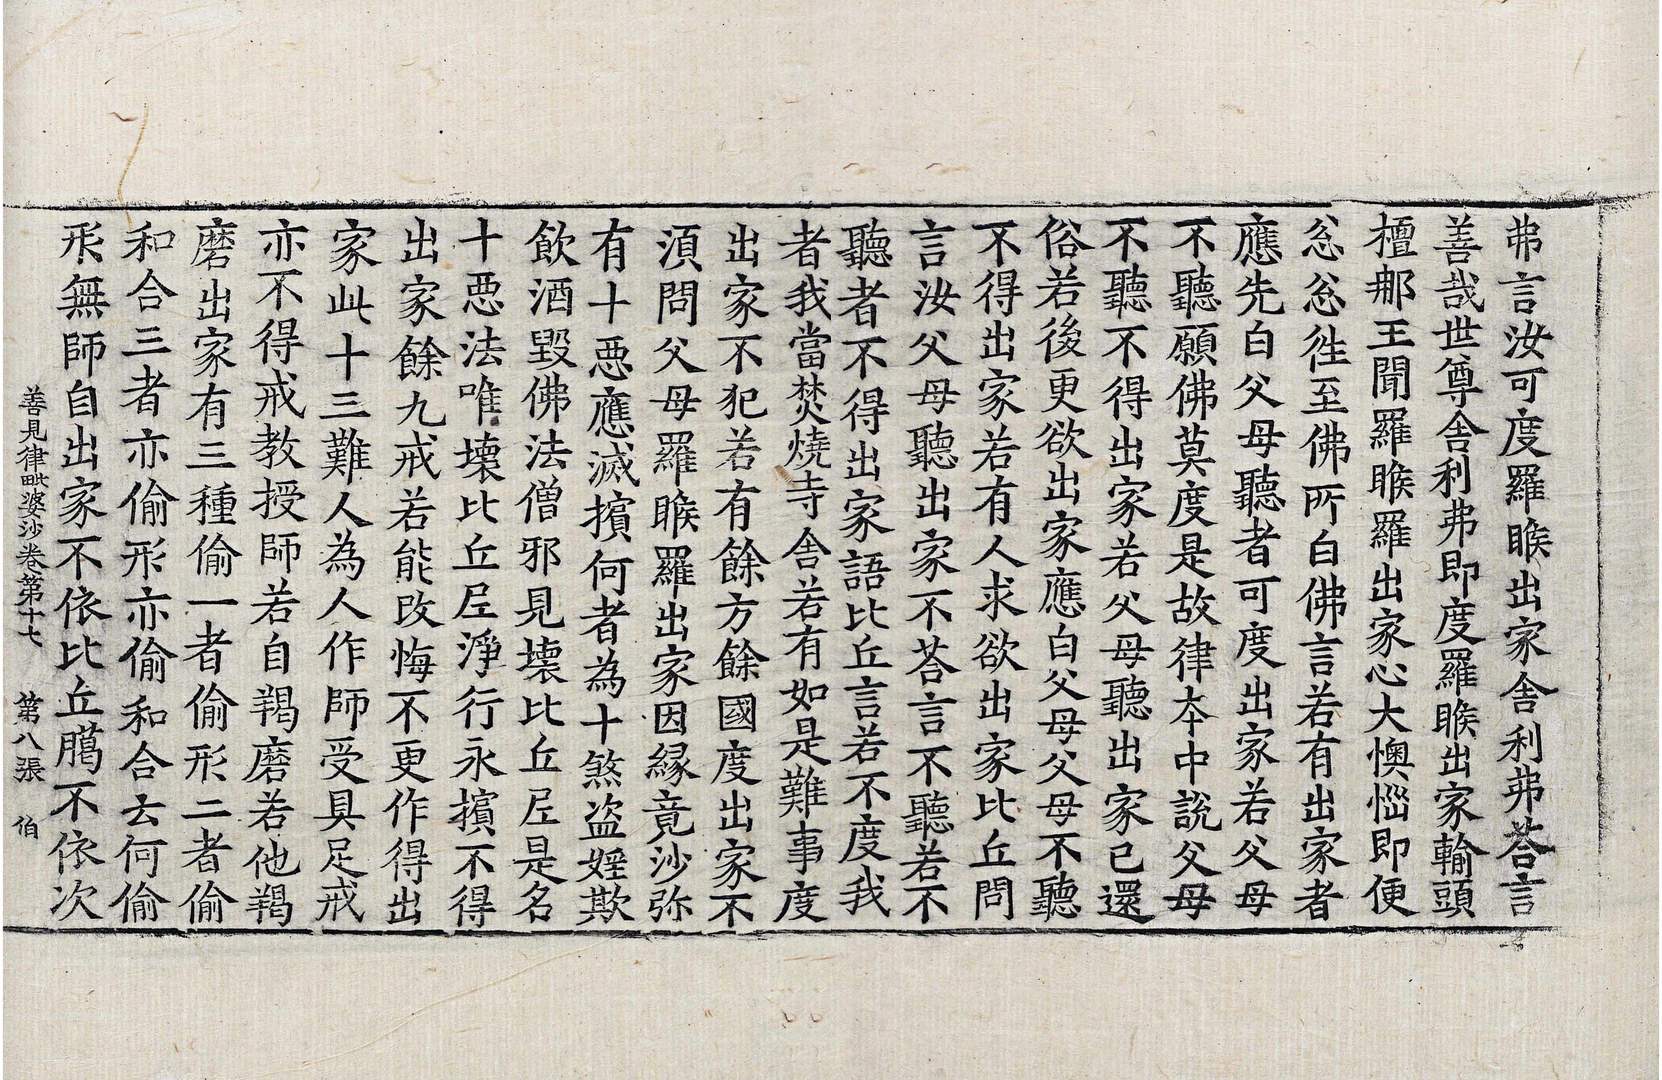 弗言汝可度羅睺出家舍利弗荅言
善哉世尊舍利弗即度羅睺出家輸頭
檀𨚗王聞羅睺羅出家心大懊惱即便
忩忩徃至佛所白佛言若有出家者
應先白父母聽者可度出家若父母
不聽願佛莫度是故律夲中說父母
不聽不得出家若父母聽出家已還
俗若後更欲出家應白父母父母不聽
不得出家若有人求欲出家比丘問
言汝父母聽出家不荅言不聽若不
聽者不得出家語比丘言若不度我
者我當焚燒寺舍若有如是難事度
出家不犯若有餘方餘國度出家不
湏問父母羅睺羅出家因縁竟沙弥
有十惡應滅擯何者為十煞盜婬欺
飲酒毀佛法僧邪見壞比丘𡰱是名
十惡法唯壞比丘𡰱淨行永擯不得
出家餘九戒若能改悔不更作得出
家此十三難人為人作師受具足戒
亦不得戒教授師若自羯磨若他羯
磨出家有三種偷一者偷形二者偷
和合三者亦偷形亦偷和合云何偷
形無師自出家不依比丘臈不依次
善見律毗婆沙卷第十七 第八張 伯